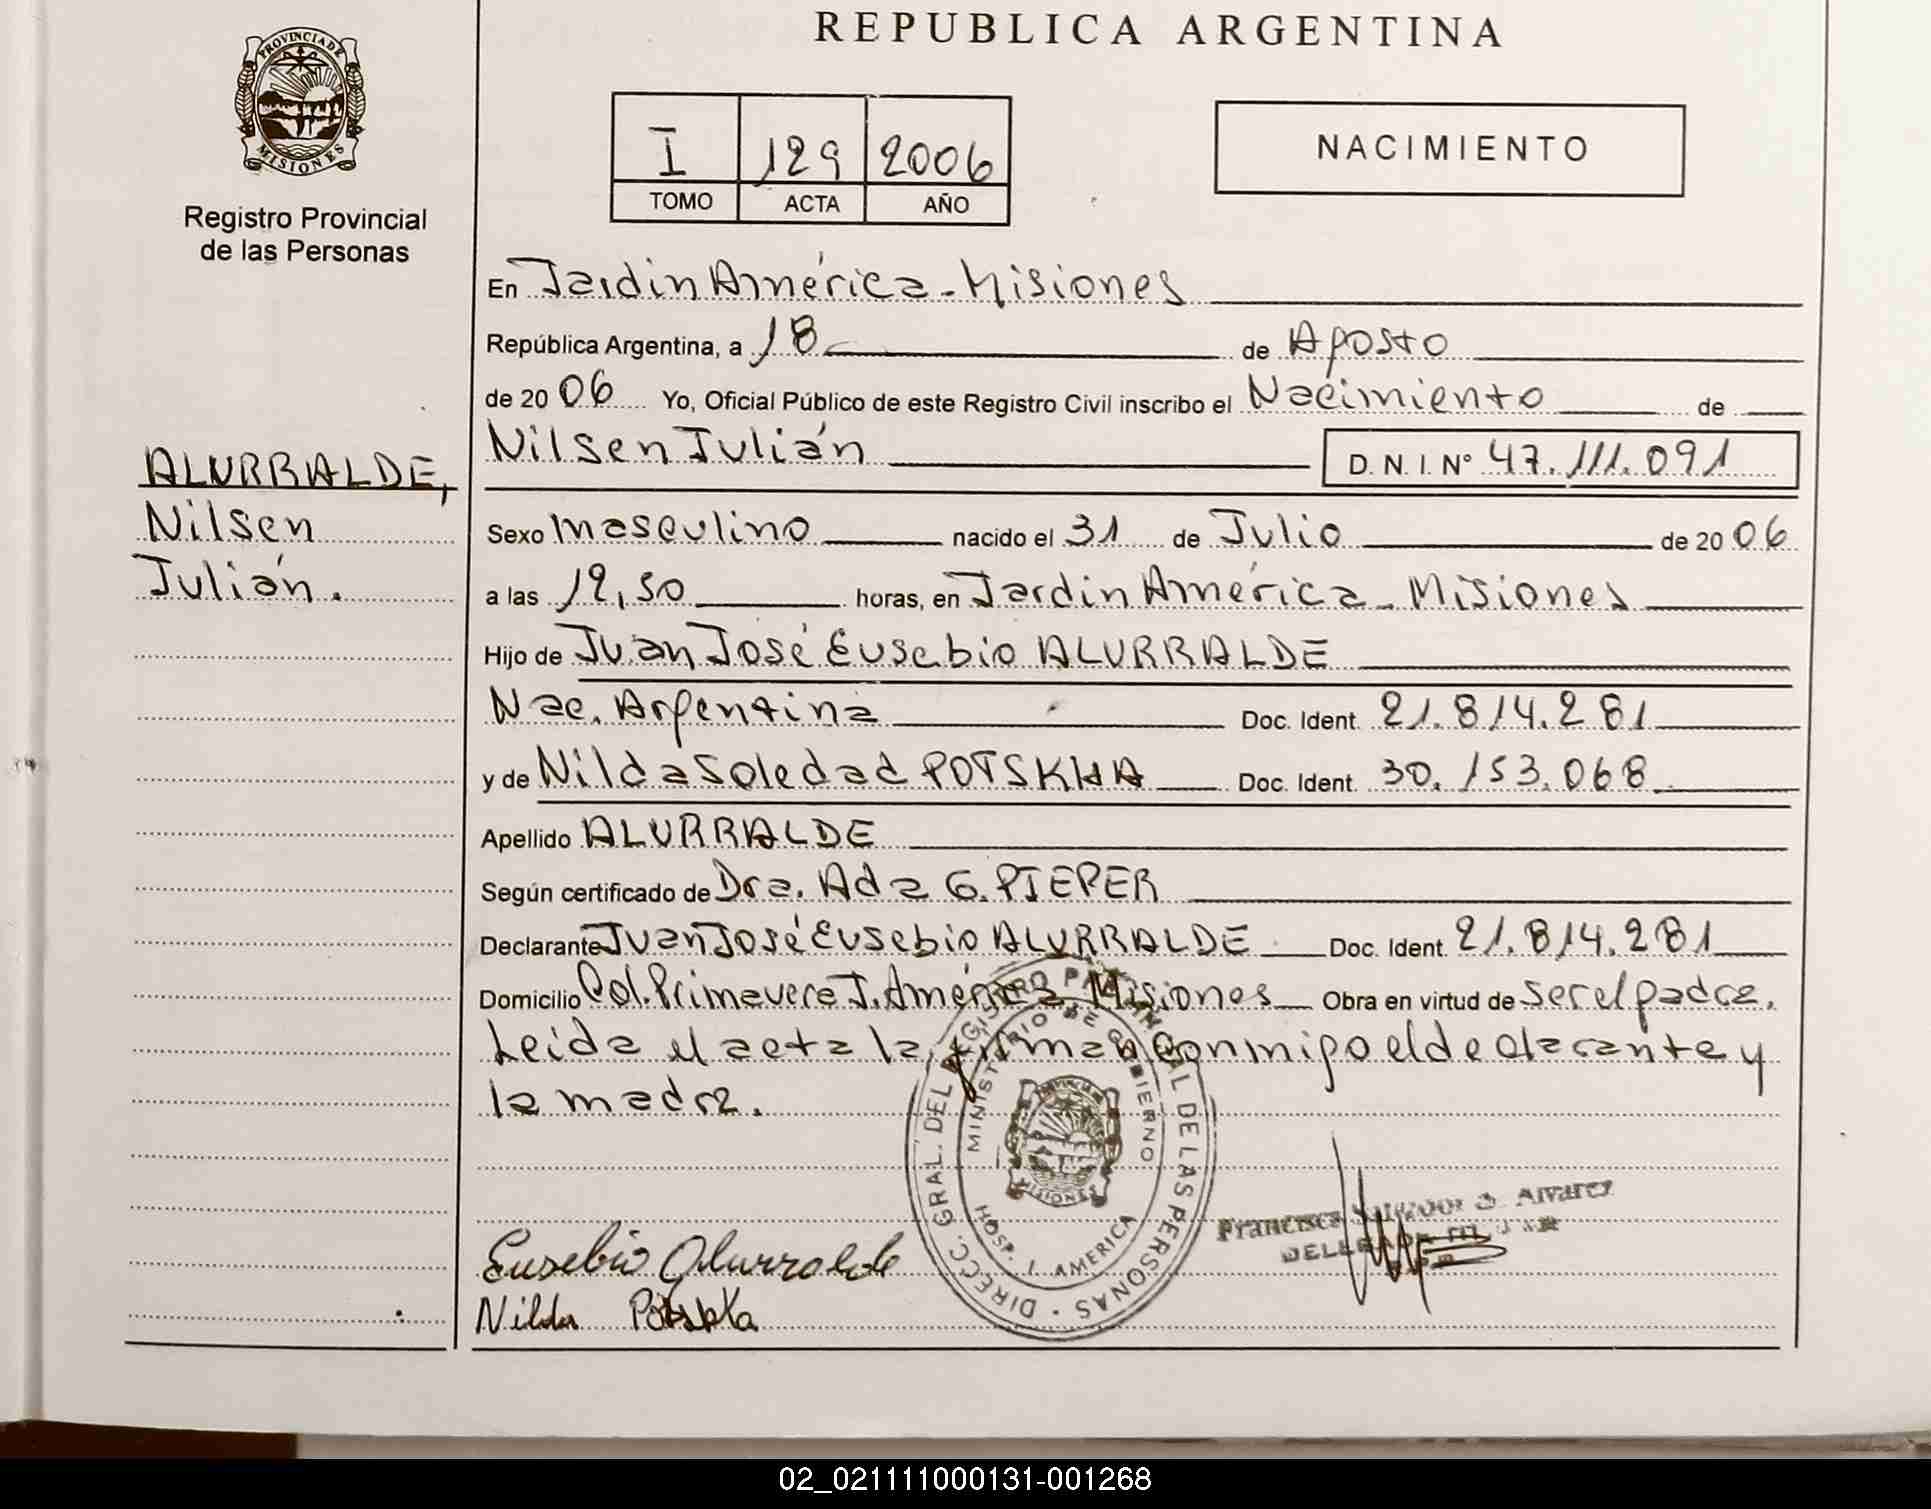 REPUBLICA ARGENTINA
PROVINCIA DE
MISIONES
Registro Provincial
de las Personas
I 129 2006
TOMO ACTA AÑO
NACIMIENTO
En Jardin América - Misiones
República Argentina, a 18 de Agosto
de 2006 Yo, Oficial Público de este Registro Civil inscribo el Nacimiento de
Nilsen Julián D. N. I. Nº 47.111.091
ALURRALDE,
Nilsen
Julián.
Sexo masculino nacido el 31 de Julio de 2006
a las 12,50 horas, en Jardin América - Misiones
Hijo de Juan José Eusebio ALURRALDE
Nac. Argentina Doc. Ident. 21.814.281
y de Nilda Soledad POTSKHA Doc. Ident. 30.153.068
Apellido ALURRALDE
Según certificado de Dra. Ada G. PIEPER
Declarante Juan José Eusebio ALURRALDE Doc. Ident. 21.814.281
Domicilio Col. Primavera J. América Misiones Obra en virtud de ser el padre.
Leida el acta la firman conmigo el declarante y
la madre.
DIRECC. GRAL. DEL REGISTRO PROVINCIAL DE LAS PERSONAS
MINISTERIO DE GOBIERNO
MISIONES
HOSP. J. AMERICA
Alvarez
Eusebio Alurralde
Nilda
02_021111000131-001268